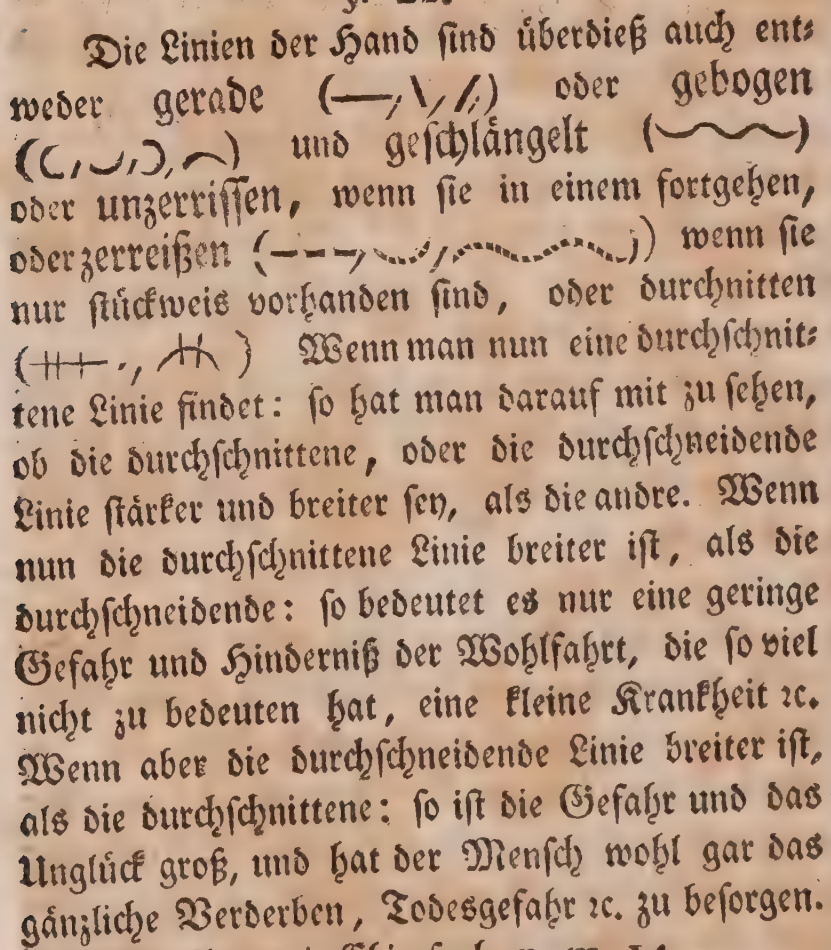 Die Linien der Hand ſind überdieß auch ent⸗
weder gerade (—, \, /,) oder gebogen
((, ‿, ), ⌒) und geſchlängelt (~~)
oder unzerriſſen, wenn ſie in einem fortgehen,
oder zerreißen (---, ) wenn ſie
nur ſtückweis vorhanden ſind, oder durchnitten
( ., ) Wenn man nun eine durchſchnit⸗
tene Linie findet: ſo hat man darauf mit zu ſehen,
ob die durchſchnittene, oder die durchſchneidende
Linie ſtärker und breiter ſey, als die andre. Wenn
nun die durchſchnittene Linie breiter iſt, als die
durchſchneidende: ſo bedeutet es nur eine geringe
Gefahr und Hinderniß der Wohlfahrt, die ſo viel
nicht zu bedeuten hat, eine kleine Krankheit ꝛc.
Wenn aber die durchſchneidende Linie breiter iſt,
als die durchſchnittene: ſo iſt die Gefahr und das
Unglück groß, und hat der Menſch wohl gar das
gänzliche Verderben, Todesgefahr ꝛc. zu beſorgen.